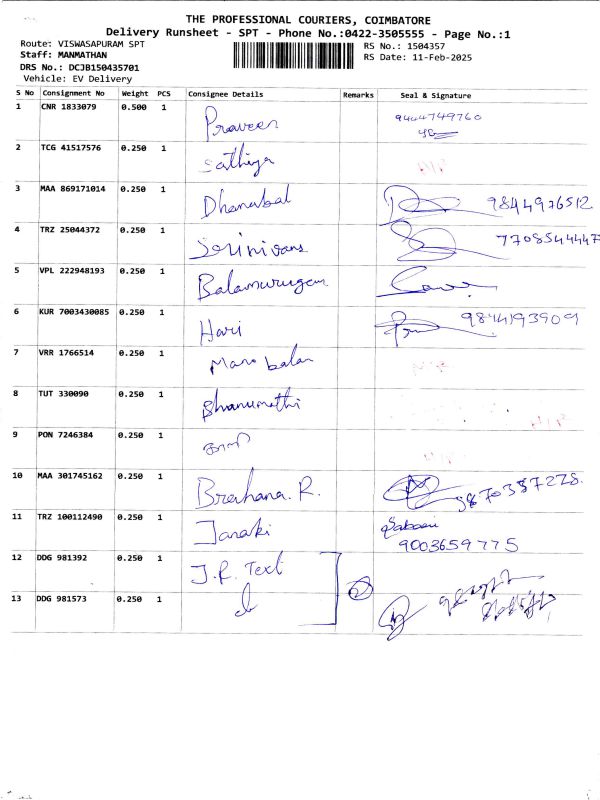 THE PROFESSIONAL COURIERS, COIMBATORE
Delivery Runsheet - SPT - Phone No.:0422-3505555 - Page No.:1
Route: VISWASAPURAM SPT
Staff: MANMATHAN
DRS No.: DCJB150435701
Vehicle: EV Delivery
RS No.: 1504357
RS Date: 11-Feb-2025
S No Consignment No Weight PCS Consignee Details Remarks Seal & Signature
1 CNR 1833079 0.500 1 Praveen 9444749760
2 TCG 41517576 0.250 1 Sathiya
3 MAA 869171014 0.250 1 Dhanabal 9844976512
4 TRZ 25044372 0.250 1 Srinivans 7708544447
5 VPL 222948193 0.250 1 Balamurugan
6 KUR 7003430085 0.250 1 Hari
7 VRR 1766514 0.250 1 Mano balan
8 TUT 330090 0.250 1 Bhanumathi
9 PON 7246384 0.250 1
10 MAA 301745162 0.250 1 R.
11 TRZ 100112490 0.250 1 Janaki
9003659775
12 DDG 981392 0.250 1 J.R. Text 2
13 DDG 981573 0.250 1